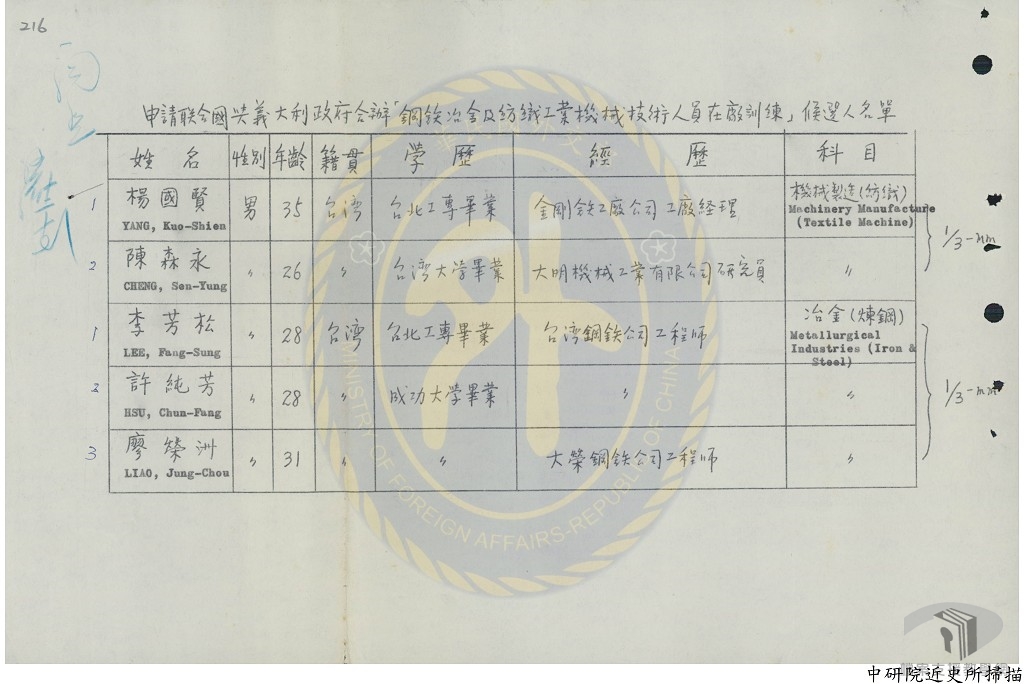 216
申請联合國与義大利政府合辦「鋼鉄冶金及紡織工業機械技術人員在廠訓練」候選人名單
姓名 性別 年齡 籍貫 学歷 經歷 科目
1 楊國賢 男 35 台湾 台北工專畢業 金剛鉄工廠公司工廠經理 機械製造(紡織)
YANG, Kuo-Shien Machinery Manufacture
(Textile Machine)
2 陳森永 〃 26 〃 台湾大学畢業 大明機械工業有限公司研究員 〃
CHENG, Sen-Yung
1 李芳松 〃 28 台湾 台北工專畢業 台湾鋼鉄公司工程师 冶金(煉鋼)
LEE, Fang-Sung Metallurgical
Industries (Iron &
Steel)
2 許純芳 〃 28 〃 成功大学畢業 〃 〃
HSU, Chun-Fang
3 廖榮洲 〃 31 〃 〃 大榮鋼鉄公司工程师 〃
LIAO, Jung-Chou
1/3-mm
1/3-mm
MINISTRY OF FOREIGN AFFAIRS-REPUBLIC OF CHINA
中研院近史所掃描